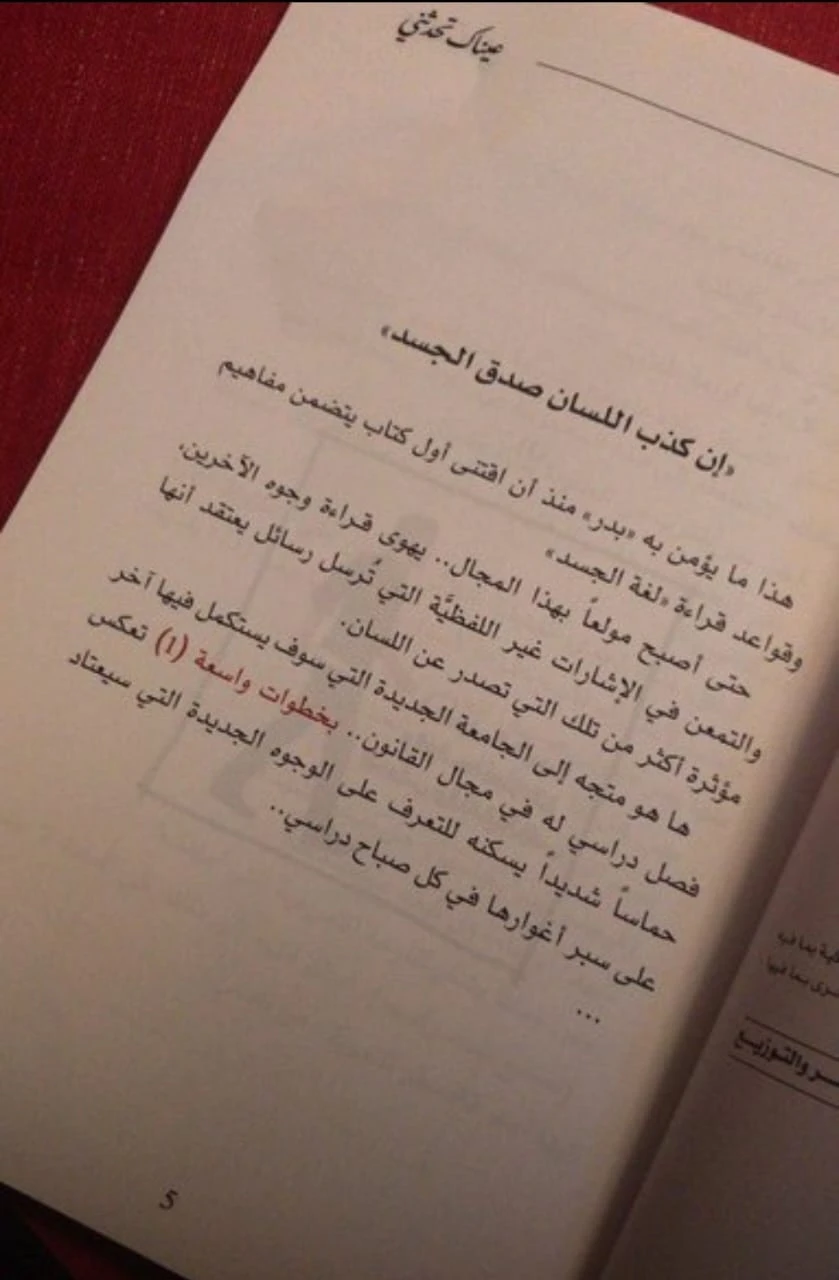 عيناك تحدثني
«إن كذب اللسان صدق الجسد»
هذا ما يؤمن به «بدر» منذ أن اقتنى أول كتاب يتضمن مفاهيم
وقواعد قراءة «لغة الجسد»
حتى أصبح مولعاً بهذا المجال.. يهوى قراءة وجوه الآخرين،
والتمعن في الإشارات غير اللفظيَّة التي تُرسل رسائل يعتقد أنها
مؤثرة أكثر من تلك التي تصدر عن اللسان.
ها هو متجه إلى الجامعة الجديدة التي سوف يستكمل فيها آخر
فصل دراسي له في مجال القانون.. بخطوات واسعة (1) تعكس
حماساً شديداً يسكنه للتعرف على الوجوه الجديدة التي سيعتاد
على سبر أغوارها في كل صباح دراسي..
...
5
والتوزيع